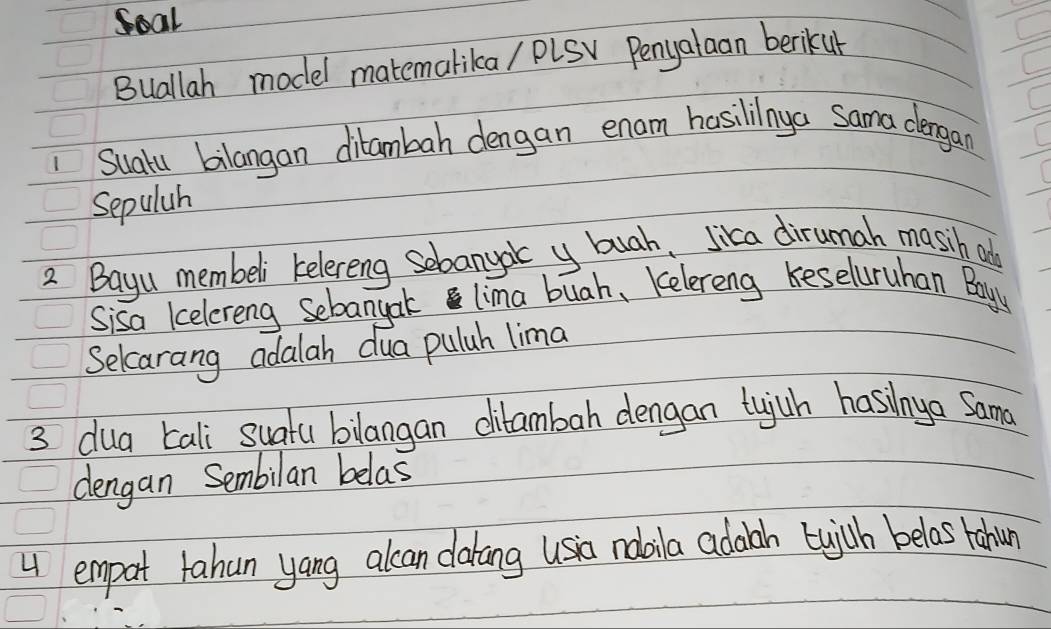 Soal
Buatlah model matematika / PLSV Penyataan berikut
1 Suatu bilangan ditambah dengan enam hasililnya Sama dengan
Sepuluh
2 Bayu membeli kelereng sebanyak y buah, Jika dirumah masih ada
Sisa kelereng Sebanyak lima buah, kelereng keseluruhan Bayu
Sekarang adalah dua puluh lima
3 dua kali suatu bilangan ditambah dengan tujuh hasilnya Sama
dengan Sembilan belas
4 empat tahun yang akan datang usia nabila adalah tujuh belas tahun